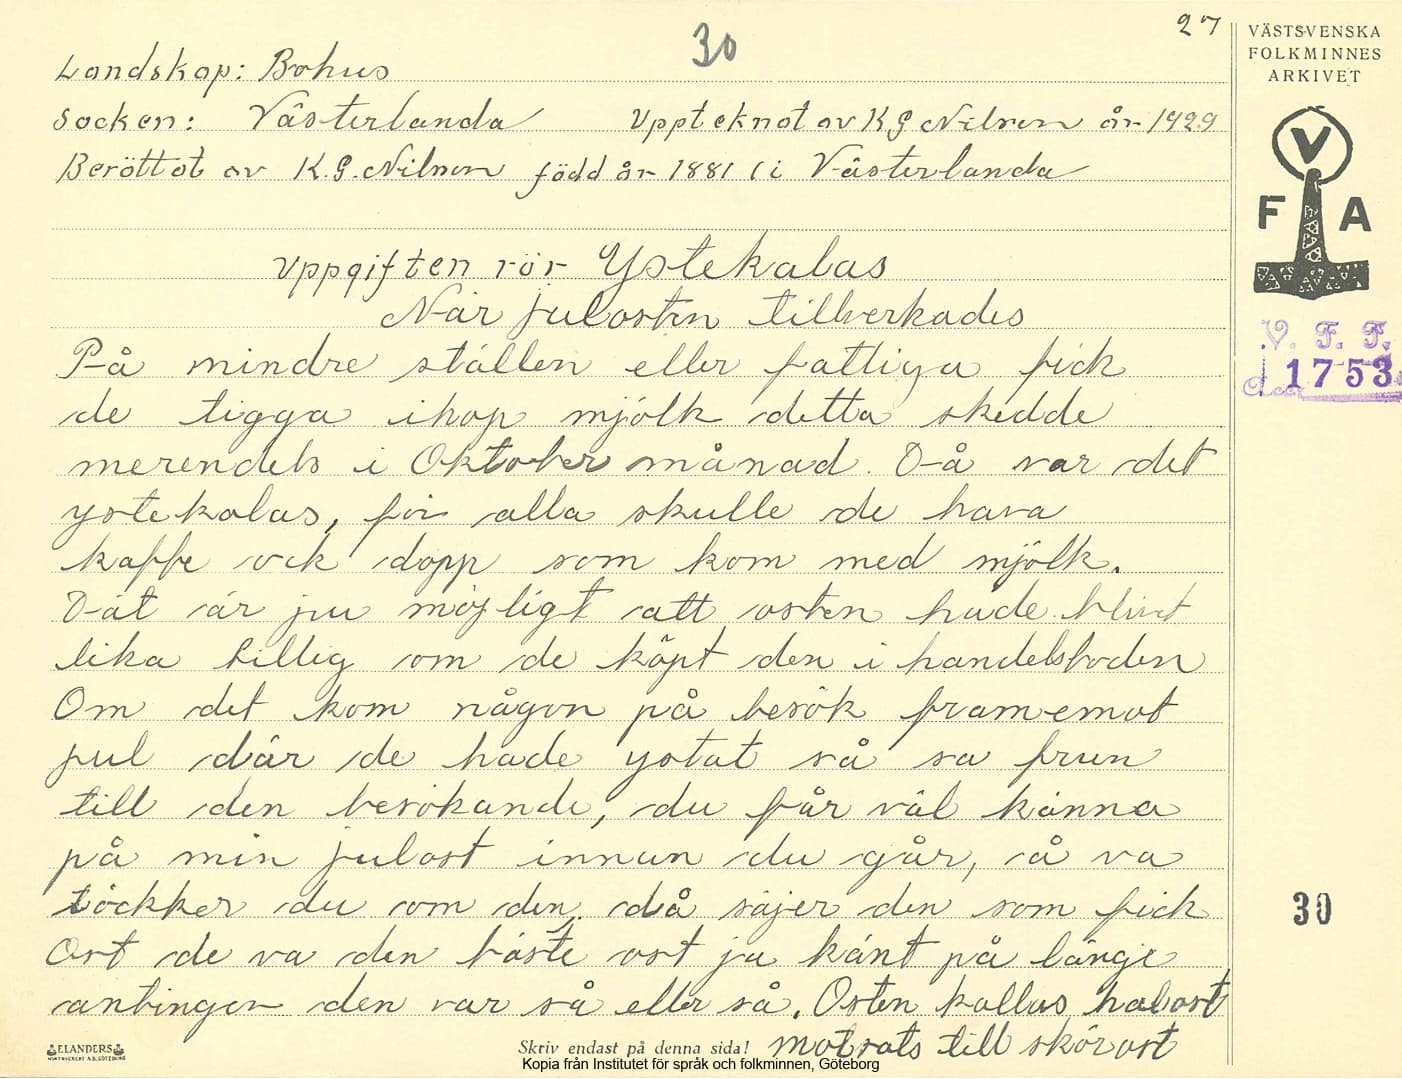 27
30
VÄSTSVENSKA
FOLKMINNES
ARKIVET
Landskap: Bohus
Socken: Västerlanda Uppteknat av K G Nilson år 1929
Berättat av K. G. Nilson född år 1881 i Västerlanda
V
F A
Uppgiften rör Ystekalas
När julosten tillverkades
V. F. F.
1753
På mindre ställen eller fattiga fick
de tigga ihop mjölk detta skedde
merendels i Oktober månad. Då var det
ystekalas, för alla skulle de hava
kaffe ock dopp som kom med mjölk.
Dät är ju möjligt att osten hade blivit
lika billig om de köpt den i handelsboden
Om det kom någon på besök framemot
jul där de hade ystat så sa frun
till den besökande, du får väl känna
på min julost innan du går, å va
töckker du om den, då säjer den som fick
Ost de va den bäste ost ja känt på länge
antingen den var så eller så. Osten kallas halost
motsats till skörost
30
ELANDERS
Skriv endast på denna sida!
Kopia från Institutet för språk och folkminnen, Göteborg